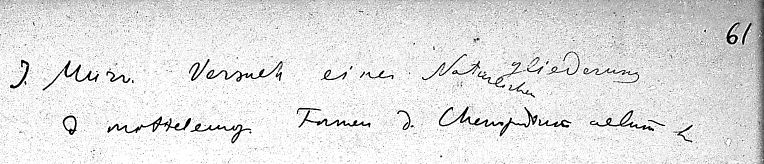 61
J. Murr. Versuch einer Natürlichen gliederung
d mitteleurop. Formen d. Chenopodium album L